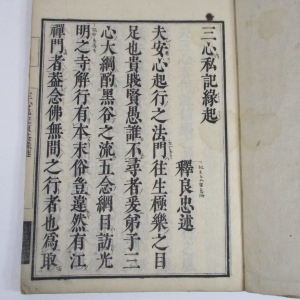 三心私記緣起
釋良忠述
夫安心起行之法門往生極樂之目
足也貴賤賢愚誰不尋者爰弟子三
心大綱酌黑谷之流五念綱目訪光
明之寺解行有本末俗豈違然有江
禪門者蓋念佛無間之行者也爲取